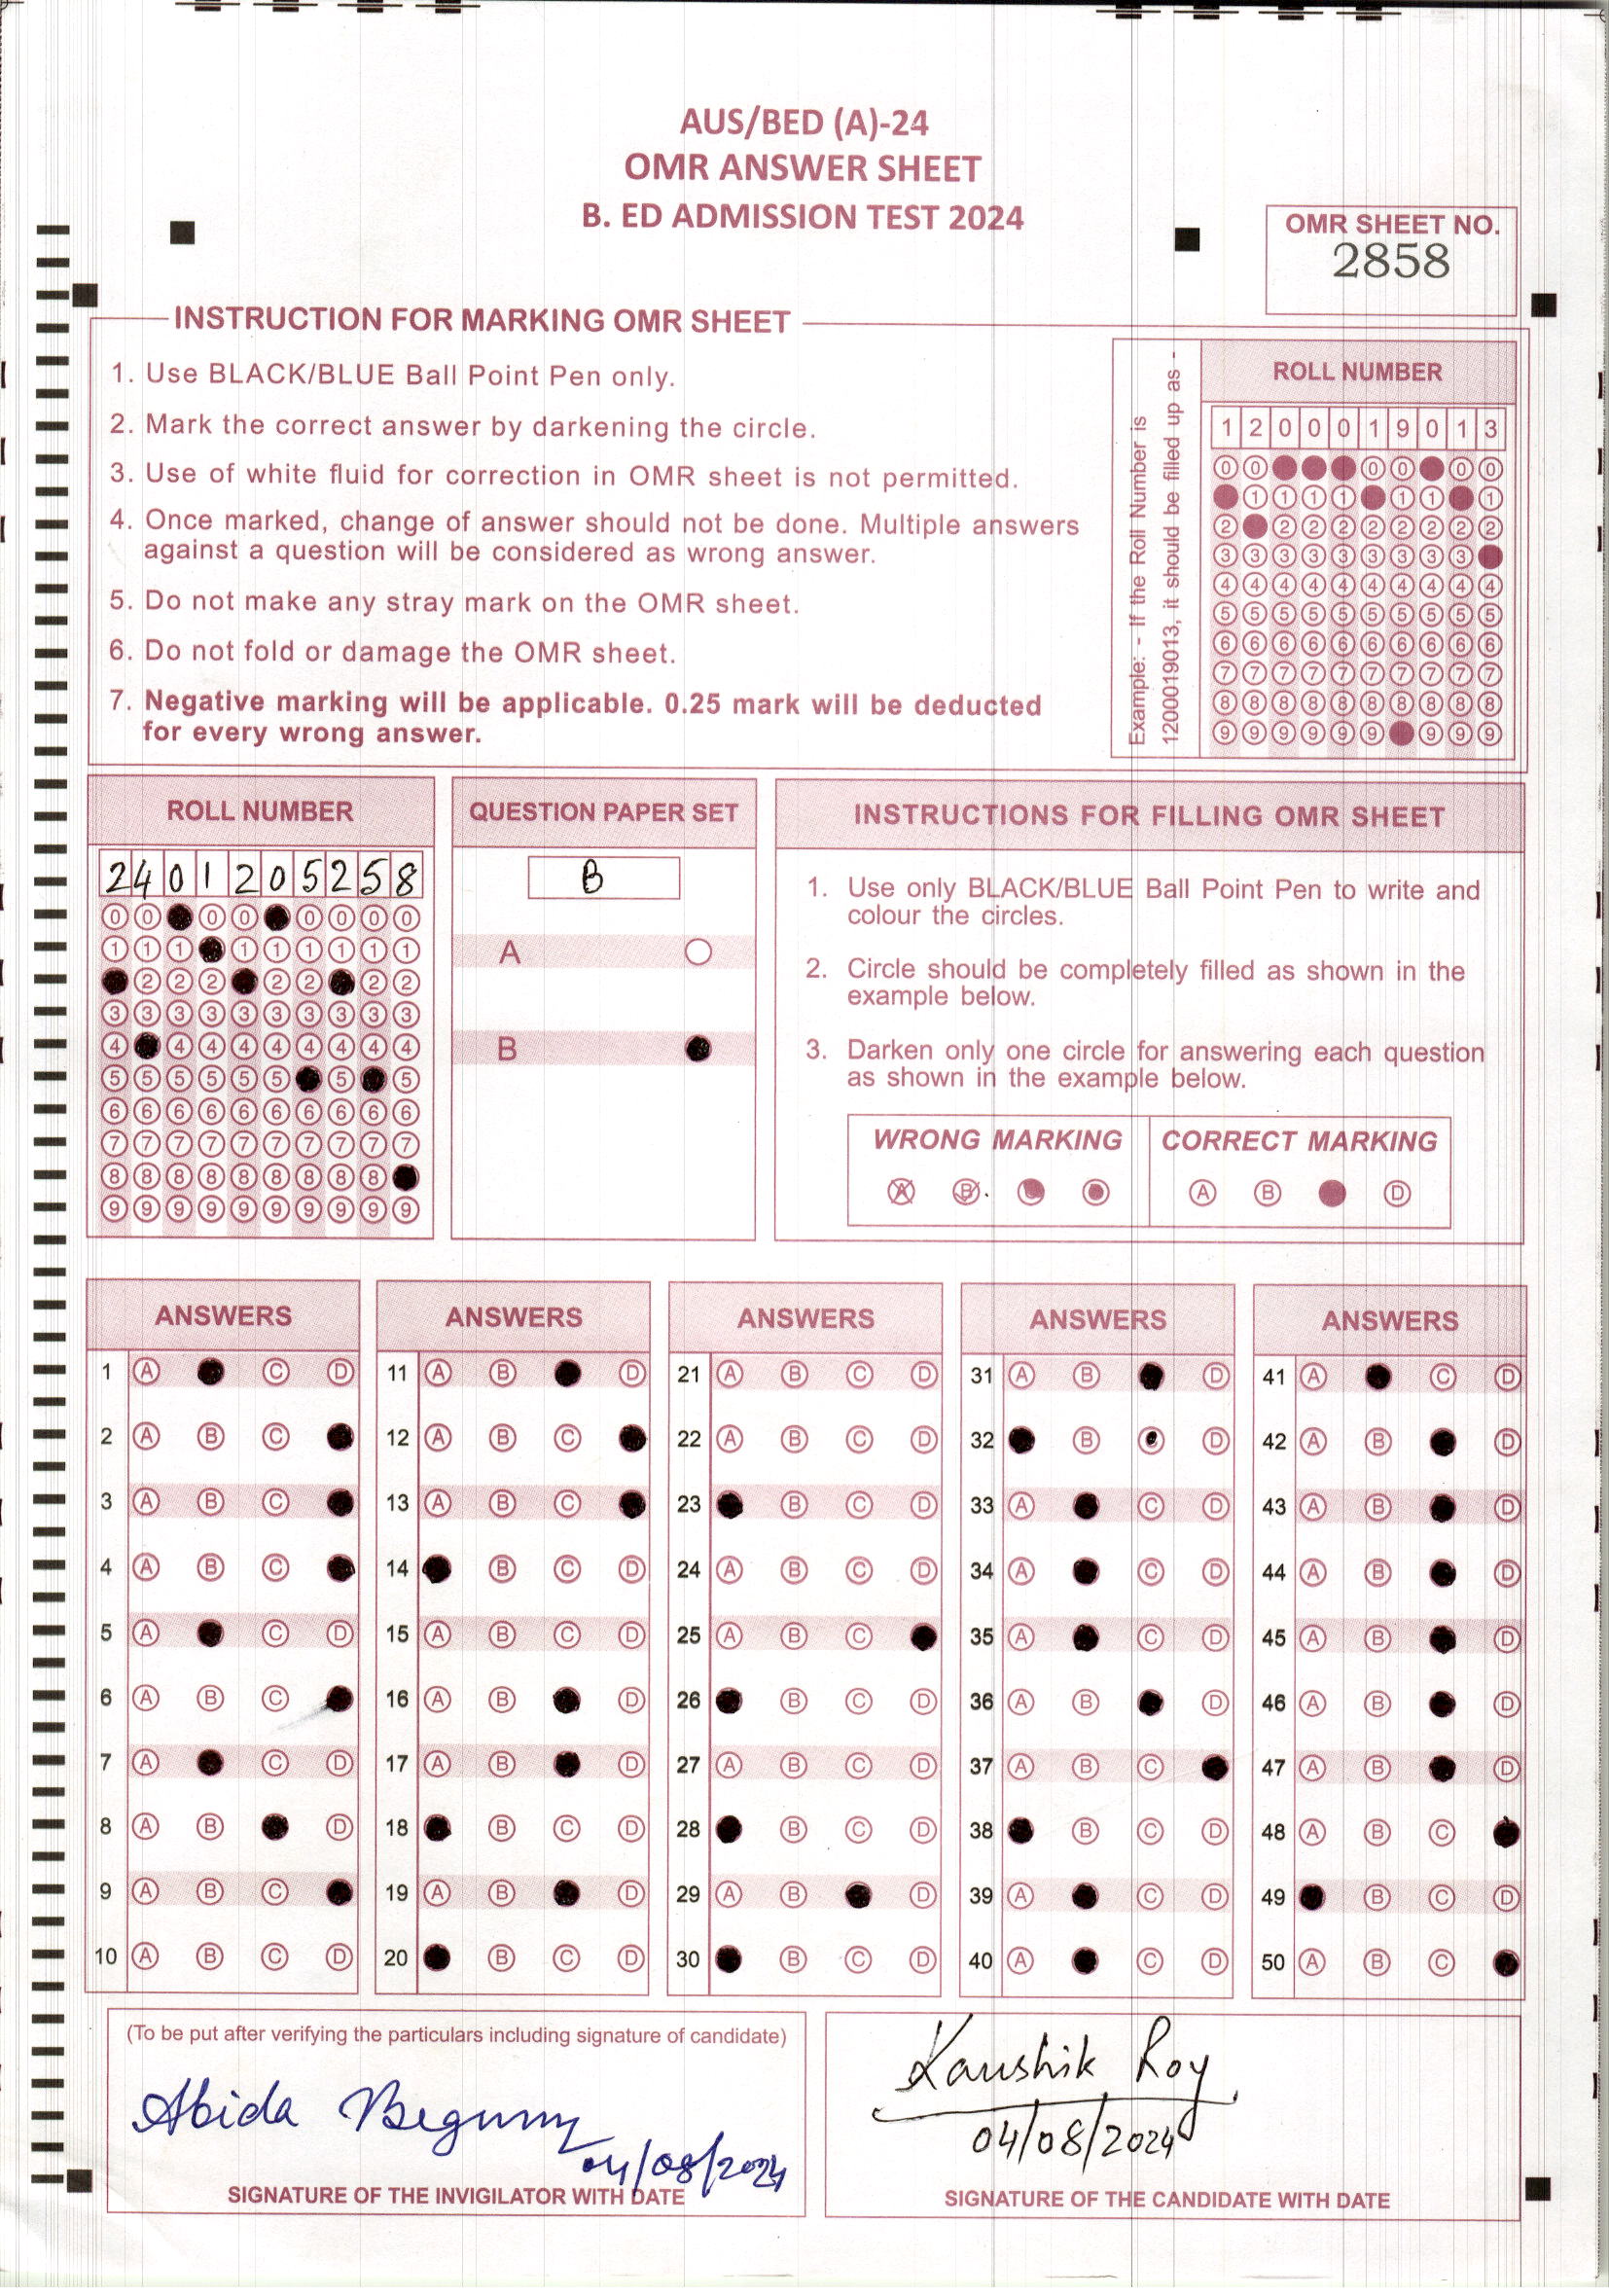 AUS/BED (A)-24
OMR ANSWER SHEET
B. ED ADMISSION TEST 2024
OMR SHEET NO.
2858
INSTRUCTION FOR MARKING OMR SHEET
1. Use BLACK/BLUE Ball Point Pen only.
2. Mark the correct answer by darkening the circle.
3. Use of white fluid for correction in OMR sheet is not permitted.
4. Once marked, change of answer should not be done. Multiple answers
against a question will be considered as wrong answer.
5. Do not make any stray mark on the OMR sheet.
6. Do not fold or damage the OMR sheet.
7. Negative marking will be applicable. 0.25 mark will be deducted
for every wrong answer.
Example: - If the Roll Number is
1200019013, it should be filled up as -
ROLL NUMBER
1 2 0 0 0 1 9 0 1 3
0 0 0 0 0 0
1 1 1 1 1 1 1
2 2 2 2 2 2 2 2 2
3 3 3 3 3 3 3 3 3
4 4 4 4 4 4 4 4 4 4
5 5 5 5 5 5 5 5 5 5
6 6 6 6 6 6 6 6 6 6
7 7 7 7 7 7 7 7 7 7
8 8 8 8 8 8 8 8 8 8
9 9 9 9 9 9 9 9 9
ROLL NUMBER
2 4 0 1 2 0 5 2 5 8
0 0 0 0 0 0 0 0
1 1 1 1 1 1 1 1 1
2 2 2 2 2 2 2
3 3 3 3 3 3 3 3 3 3
4 4 4 4 4 4 4 4 4
5 5 5 5 5 5 5 5
6 6 6 6 6 6 6 6 6 6
7 7 7 7 7 7 7 7 7 7
8 8 8 8 8 8 8 8 8
9 9 9 9 9 9 9 9 9 9
QUESTION PAPER SET
B
A
B
INSTRUCTIONS FOR FILLING OMR SHEET
1. Use only BLACK/BLUE Ball Point Pen to write and
colour the circles.
2. Circle should be completely filled as shown in the
example below.
3. Darken only one circle for answering each question
as shown in the example below.
WRONG MARKING
A B
CORRECT MARKING
A B D
ANSWERS
1 A C D
2 A B C
3 A B C
4 A B C
5 A C D
6 A B C
7 A C D
8 A B D
9 A B C
10 A B C D
ANSWERS
11 A B D
12 A B C
13 A B C
14 B C D
15 A B C D
16 A B D
17 A B D
18 B C D
19 A B D
20 B C D
ANSWERS
21 A B C D
22 A B C D
23 B C D
24 A B C D
25 A B C
26 B C D
27 A B C D
28 B C D
29 A B D
30 B C D
ANSWERS
31 A B D
32 B C D
33 A C D
34 A C D
35 A C D
36 A B D
37 A B C
38 B C D
39 A C D
40 A C D
ANSWERS
41 A C D
42 A B D
43 A B D
44 A B D
45 A B D
46 A B D
47 A B D
48 A B C
49 B C D
50 A B C
(To be put after verifying the particulars including signature of candidate)
Abida Begum
04/08/2024
SIGNATURE OF THE INVIGILATOR WITH DATE
Kaushik Roy
04/08/2024
SIGNATURE OF THE CANDIDATE WITH DATE